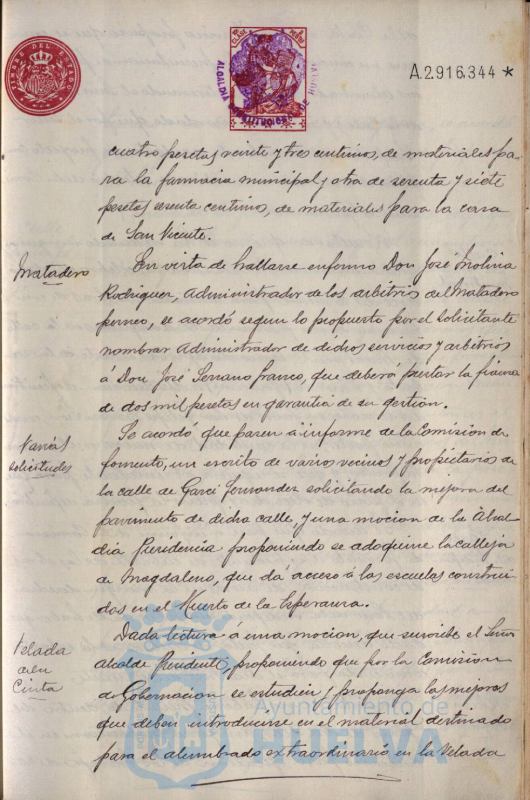 TIMBRE DEL ESTADO
10ª CLASE 1 PESETA
ALCALDIA CONSTITUCIONAL DE HUELVA
A.2.916.344 *
cuatro pesetas veinte y tres centimos, de materiales pa-
ra la farmacia municipal y otra de sesenta y siete
pesetas sesenta centimos, de materiales para la casa
de San Vicente.
Matadero
En vista de hallarse enfermo Don José Molina
Rodriguez, Administrador de los arbitrios del Matadero
porcuno, se acordó segun lo propuesto por el solicitante
nombrar Administrador de dichos servicios y arbitrios
á Don José Serrano Franco, que deberá prestar la fianza
de dos mil pesetas en garantia de su gestion.
Varias
solicitudes
Se acordó que pasen á informe de la Comision de
fomento, un escrito de varios vecinos y propietarios de
la calle de Garci Fernandez solicitando la mejora del
pavimento de dicha calle y una mocion de la Alcal
dia Presidencia proponiendo se adoquine la calleja
de Magdaleno, que dá acceso á las escuelas construi
das en el Huerto de la Esperanza.
Velada
de la
Cinta
Dada lectura á una mocion, que suscribe el Señor
Alcalde Presidente, proponiendo que por la Comision
de Gobernacion se estudien y proponga las mejoras
que deban introducirse en el material destinado
para el alumbrado extraordinario en la Velada
Ayuntamiento de
HUELVA